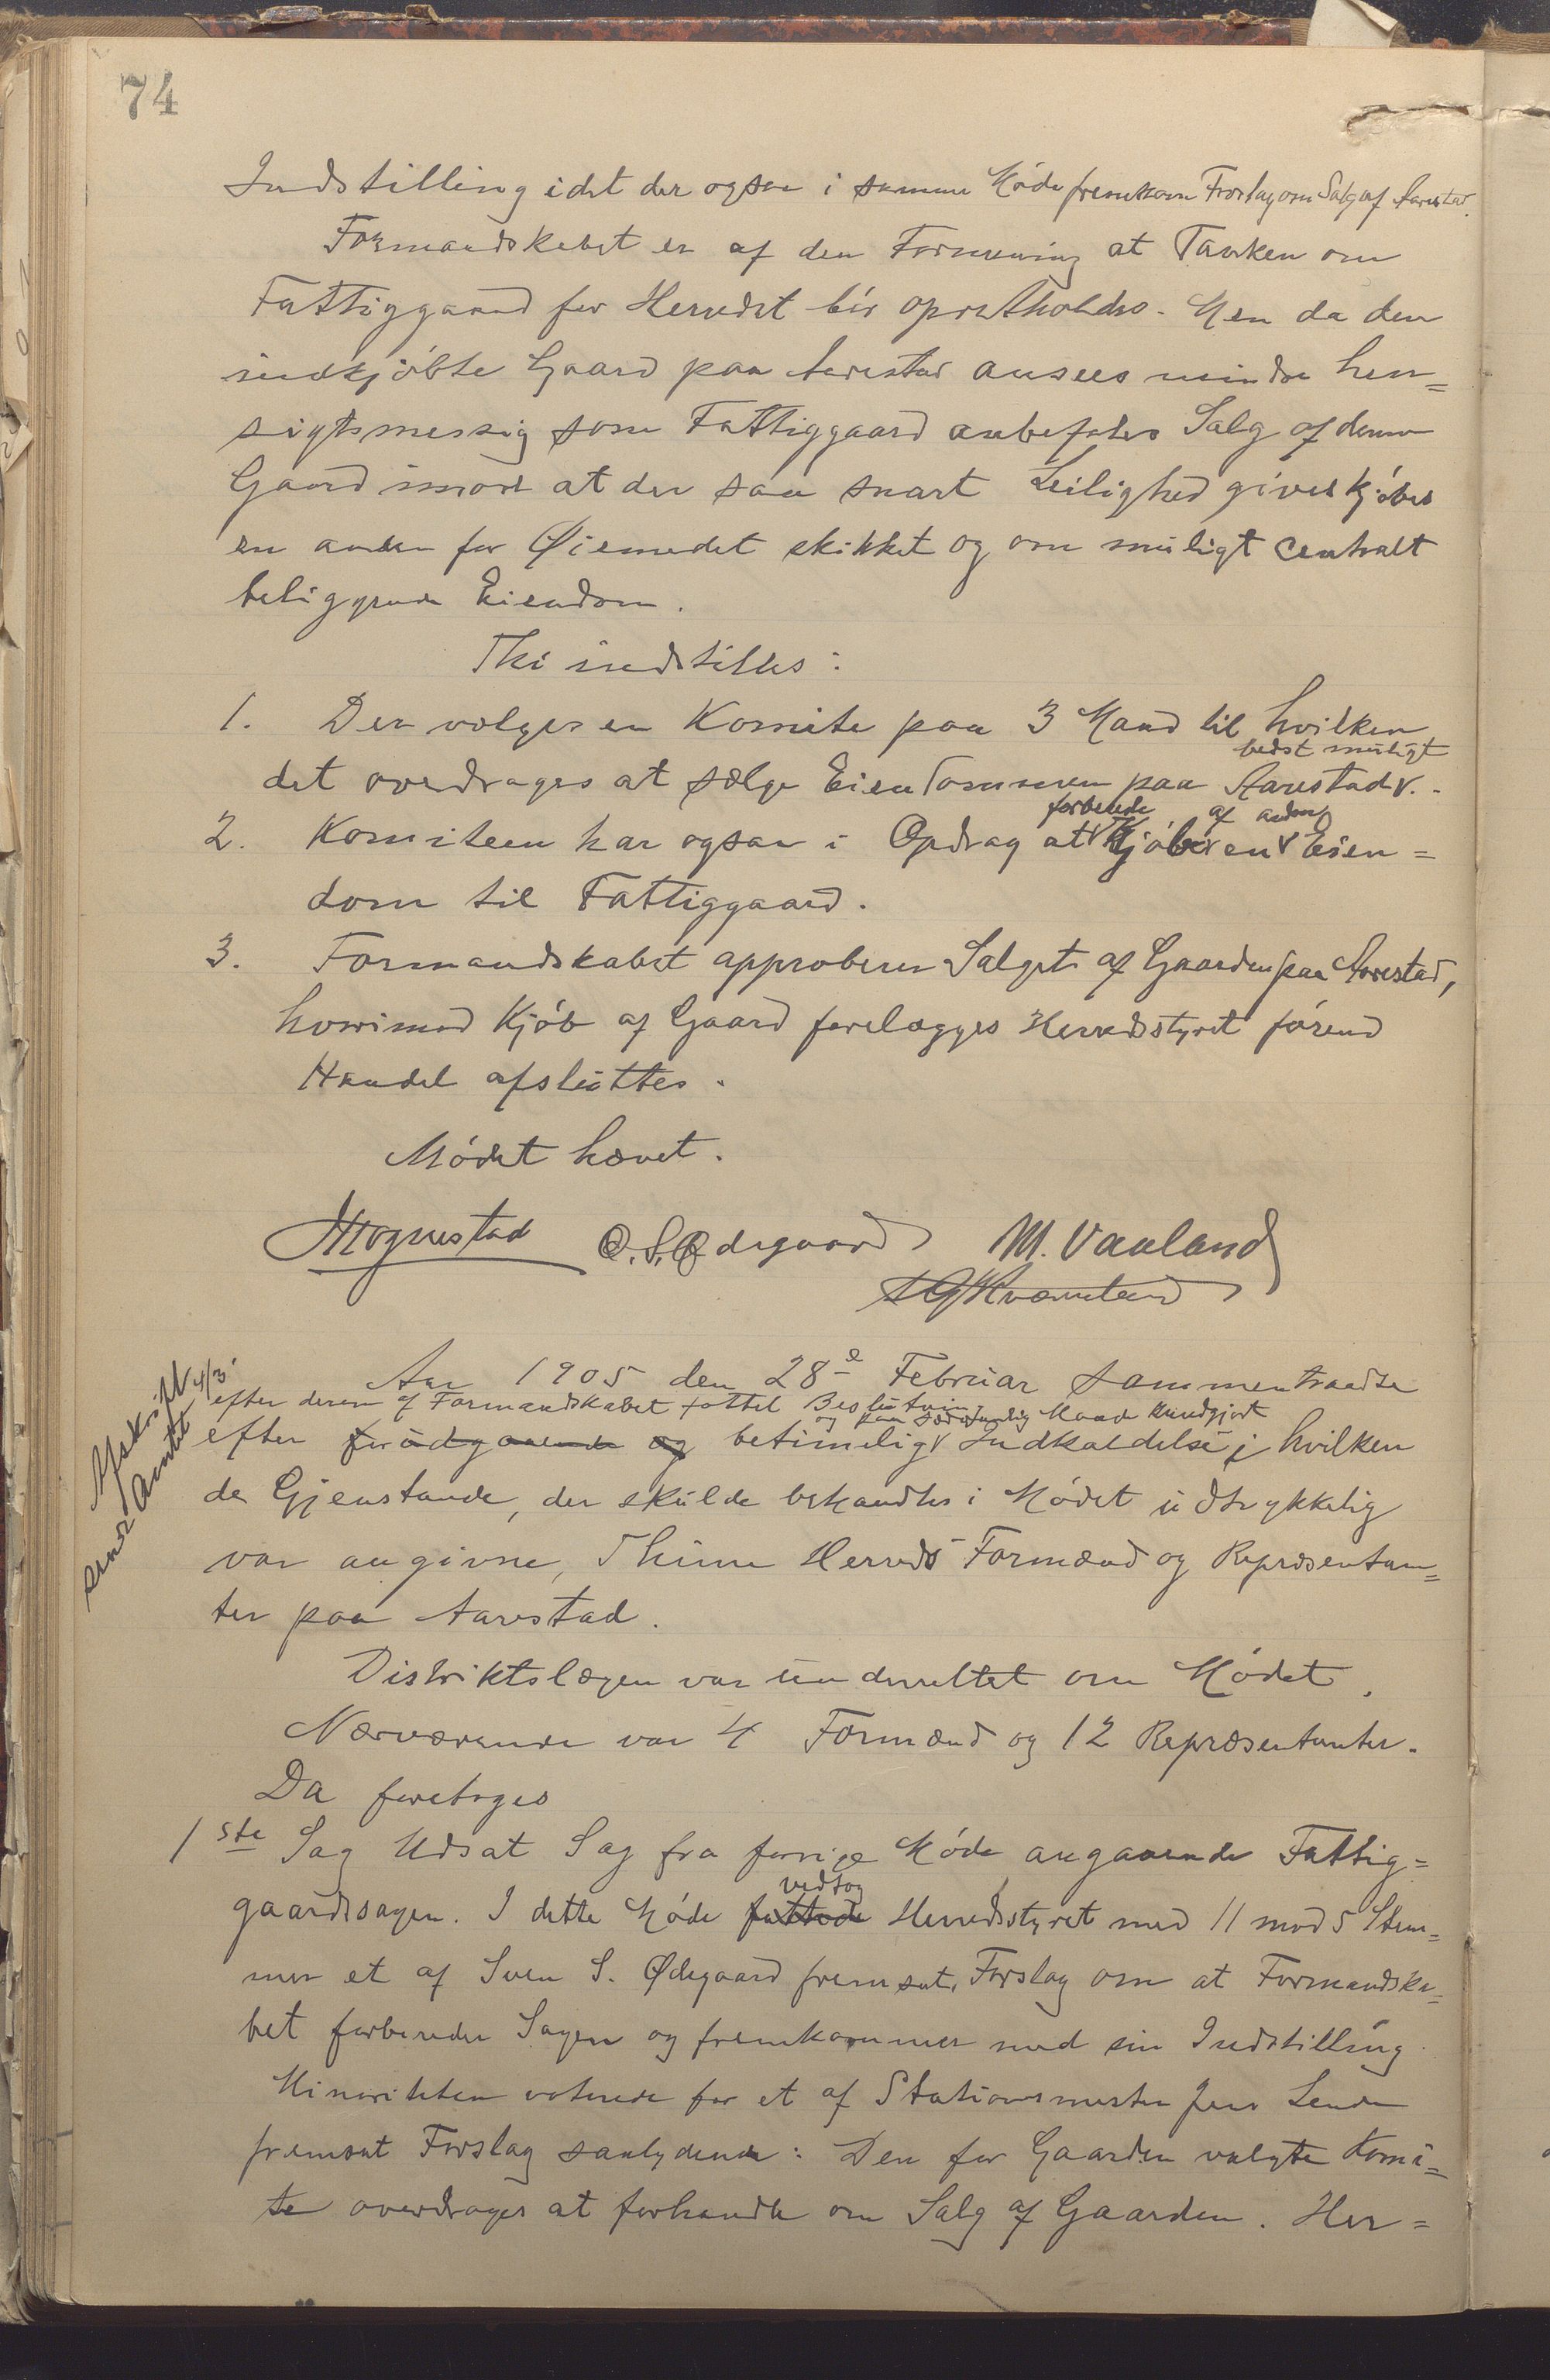 74
Indstilling idet der ogsaa i samme Møde fremkom Forslag om Salg af Aarestad.
Formandskabet er af den Formening at Tanken om
Fattiggaard for Herredet bør opretholdes. Men da den
indkjøbte Gaard paa Aarestad ansees mindre hen=
sigtsmessig som Fattiggaard anbefales Salg af denne
Gaard imod at der saa snart Leilighed gives kjøbes
en anden for Øiemedet skikket og om muligt centralt
beliggende Eiendom.
Thi indstilles:
1. Der vælges en Komite paa 3 Mand til hvilken
bedst muligt
det overdrages at sælge Eiendommen paa Aarestad.
forberede af anden
2. Komiteen har ogsaa i Opdrag at Kjøb en Eien=
dom til Fattiggaard.
3. Formandskabet approberer Salget af Gaarden paa Aarestad,
hvorimod Kjøb af Gaard forelægges Herredsstyret førend
Handel afsluttes.
Mødet hævet.
Mognestad O. S. Ødegaard M. Vaaland
Kvæmstad
Afskrift 4/3
send Amtet
Aar 1905 den 28de Februar sammentraadte
efter derom af Formandskabet fattet Beslutning
og paa sædvanlig Maade kundgjort
efter forudgaaende og betimelig Indkaldelse i hvilken
de Gjenstande, der skulde behandles i Mødet udtrykkelig
var angivne, Thime Herreds Formænd og Repræsentan=
ter paa Aarestad.
Distriktslægen var underrettet om Mødet.
Nærværende var 4 Formænd og 12 Repræsentanter.
Da foretoges
1ste Sag Udsat Sag fra forrige Møde angaaende Fattig=
vedtog
gaardssagen. I dette Møde fattede Herredsstyret med 11 mod 5 Stem=
mer et af Sven S. Ødegaard fremsat Forslag om at Formandska=
bet forbereder Sagen og fremkommer med sin Indstilling.
Minoriteten voterede for et af Stationsmester Jens Lende
fremsat Forslag saalydende: Den for Gaarden valgte Komi=
te overdrages at forhandle om Salg af Gaarden. Her=